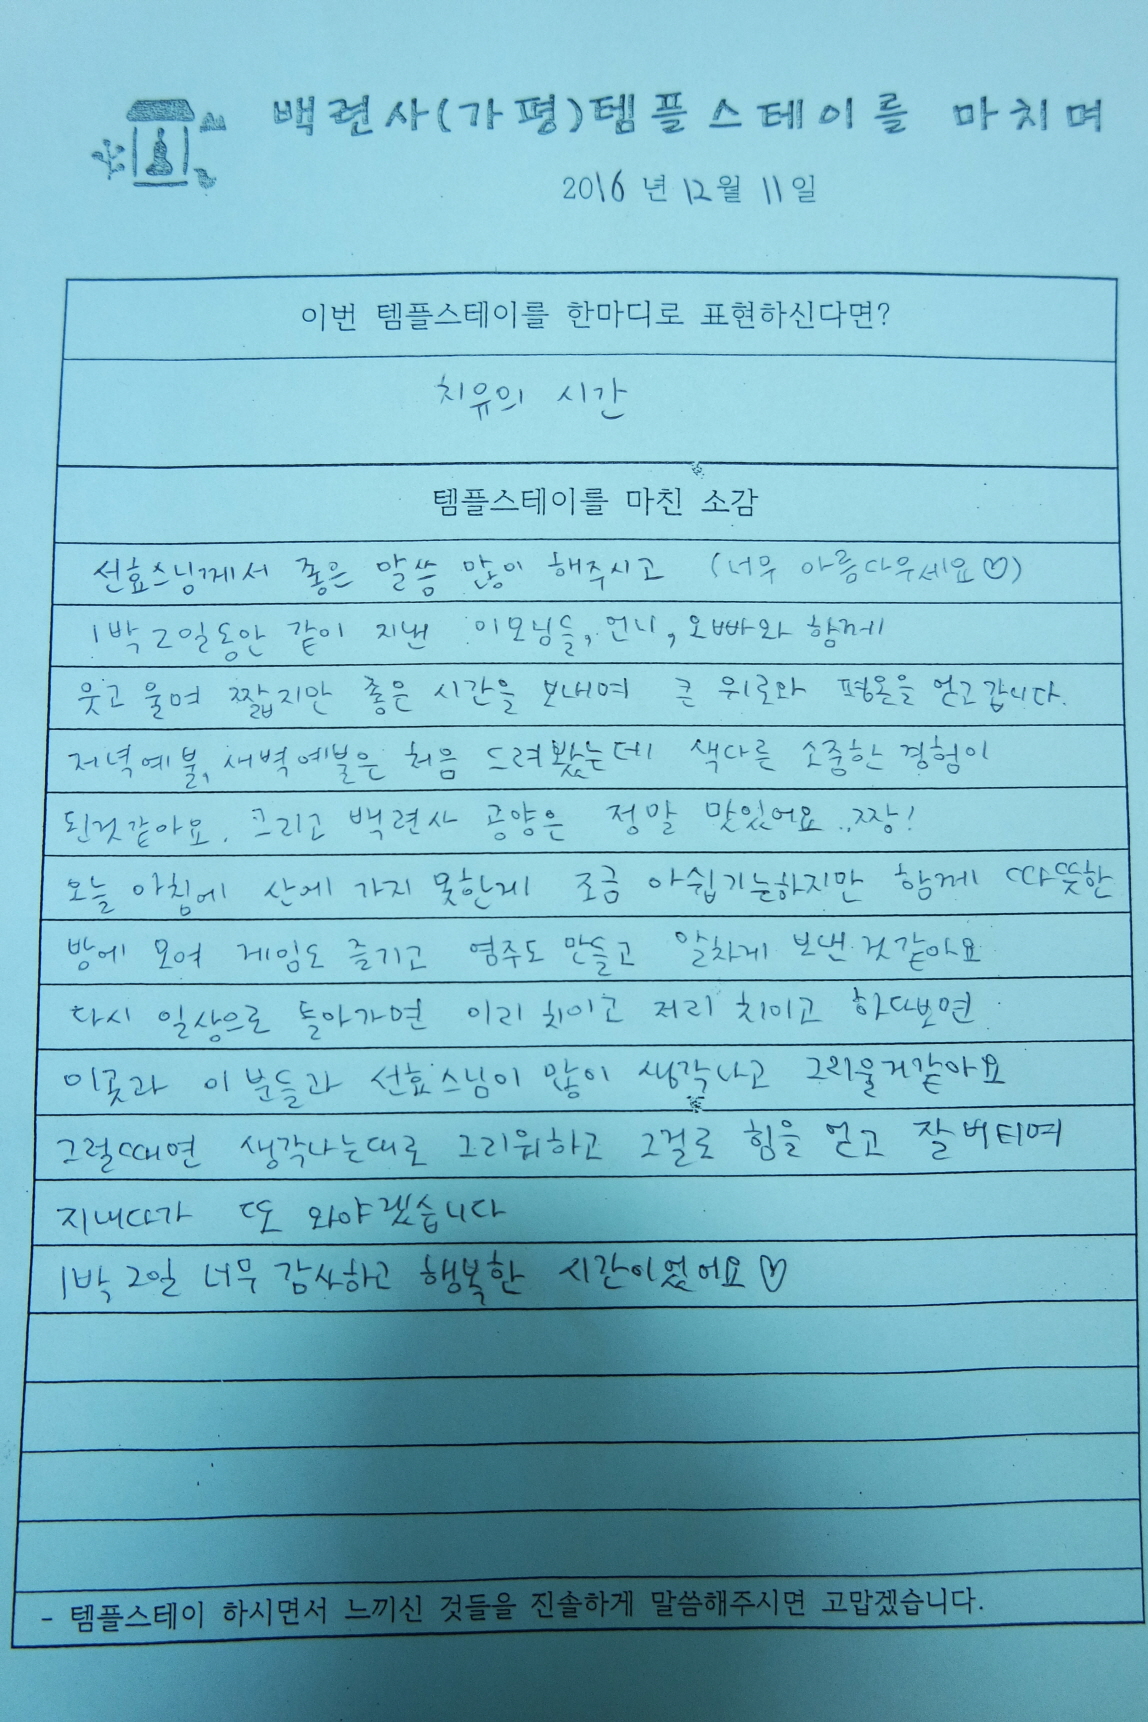 백련사(가평)템플스테이를 마치며
2016 년 12월 11일
이번 템플스테이를 한마디로 표현하신다면?
치유의 시간
템플스테이를 마친 소감
선효스님께서 좋은 말씀 많이 해주시고 (너무 아름다우세요♡)
1박 2일동안 같이 지낸 이모님들, 언니, 오빠와 함께
웃고 울며 짧지만 좋은 시간을 보내며 큰 위로와 평온을 얻고갑니다.
저녁예불, 새벽예불은 처음 드려봤는데 색다른 소중한 경험이
된것같아요. 그리고 백련사 공양은 정말 맛있어요..짱!
오늘 아침에 산에 가지 못한게 조금 아쉽기는하지만 함께 따뜻한
방에 모여 게임도 즐기고 염주도 만들고 알차게 보낸것같아요
다시 일상으로 돌아가면 이리 치이고 저리 치이고 하다보면
이곳과 이 분들과 선효스님이 많이 생각나고 그리울거같아요
그럴때면 생각나는대로 그리워하고 그걸로 힘을 얻고 잘버티며
지내다가 또 와야겠습니다
1박 2일 너무 감사하고 행복한 시간이었어요♡
- 템플스테이 하시면서 느끼신 것들을 진솔하게 말씀해주시면 고맙겠습니다.